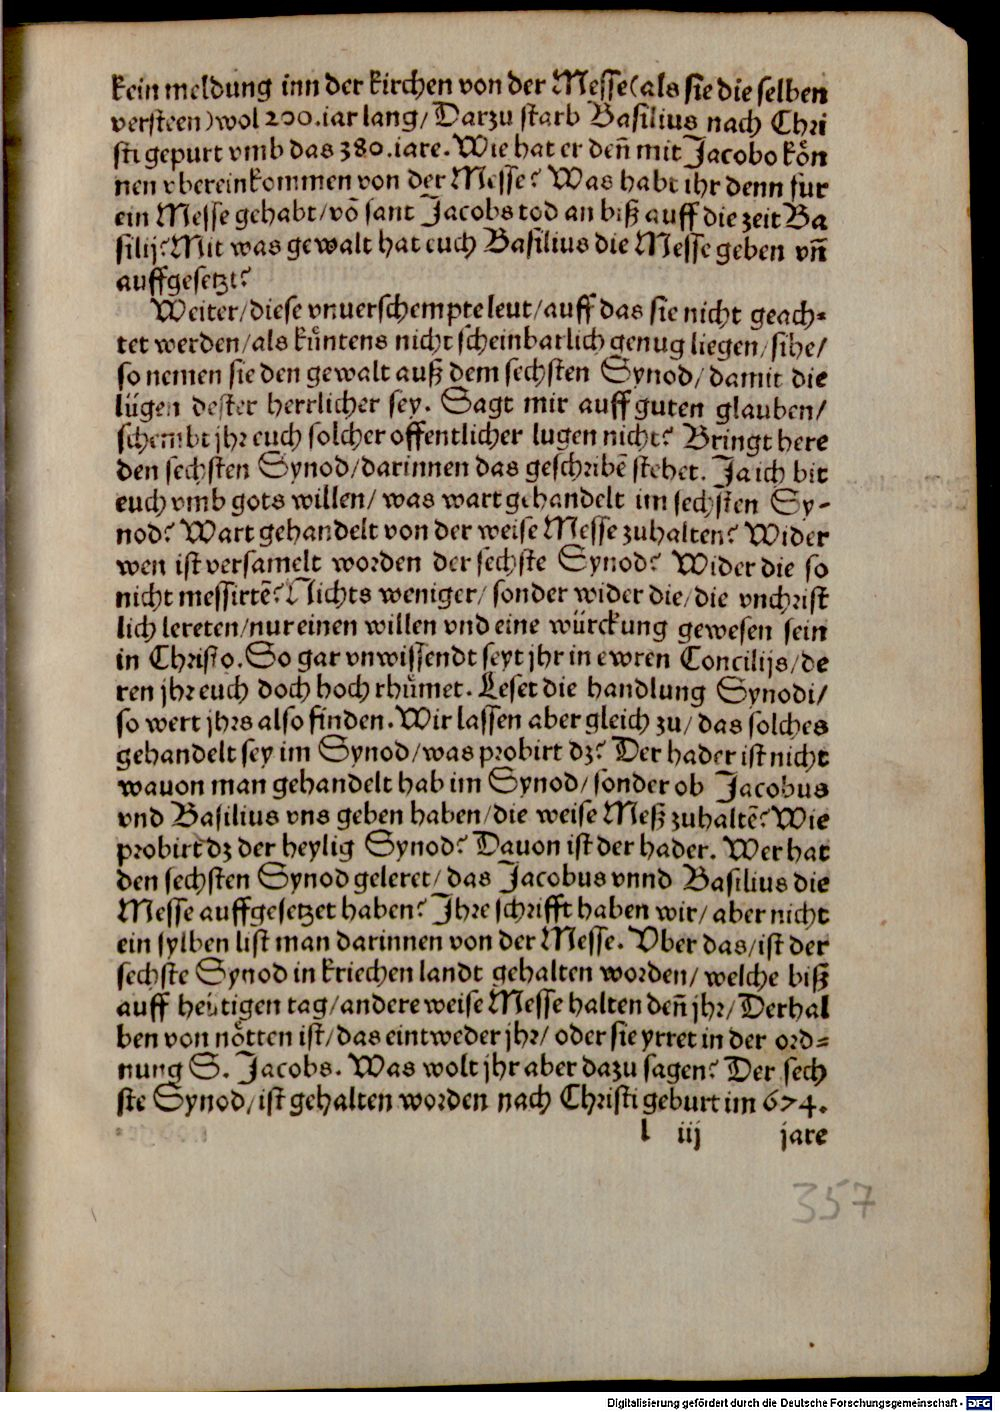 kein meldung inn der kirchen von der Messe (als sie die selben
versteen) wol 200. iar lang/ Darzu starb Basilius nach Chri
sti gepurt vmb das 380. iare. Wie hat er deñ mit Jacobo koͤn
nen vbereinkommen von der Messe? Was habt ihr denn fur
ein Messe gehabt/ võ sant Jacobs tod an biß auff die zeit Ba
silij? Mit was gewalt hat euch Basilius die Messe geben vñ
auffgesetzt?
Weiter/ diese vnuerschempte leut/ auff das sie nicht geach-
tet werden/ als kuͤntens nicht scheinbarlich genug liegen/ sihe/
so nemen sie den gewalt auß dem sechsten Synod/ damit die
lügen dester herrlicher sey. Sagt mir auff guten glauben/
schembt jhr euch solcher offentlicher lugen nicht? Bringt here
den sechsten Synod/ darinnen das geschribē stehet. Ja ich bit
euch vmb gots willen/ was wart gehandelt im sechsten Sy-
nod? Wart gehandelt von der weise Messe zuhalten? Wider
wen ist versamelt worden der sechste Synod? Wider die so
nicht messirtē? Nichts weniger/ sonder wider die/ die vnchrist
lich lereten/ nur einen willen vnd eine würckung gewesen sein
in Christo. So gar vnwissendt seyt jhr in ewren Concilijs/ de
ren jhr euch doch hoch rhuͤmet. Leset die handlung Synodi/
so wert jhrs also finden. Wir lassen aber gleich zu/ das solches
gehandelt sey im Synod/ was probirt dz? Der hader ist nicht
wauon man gehandelt hab im Synod/ sonder ob Jacobus
vnd Basilius vns geben haben/ die weise Meß zuhaltē? Wie
probirt dz der heylig Synod? Dauon ist der hader. Wer hat
den sechsten Synod geleret/ das Jacobus vnnd Basilius die
Messe auffgesetzet haben? Ihre schrifft haben wir/ aber nicht
ein sylben list man darinnen von der Messe. Vber das/ ist der
sechste Synod in kriechen landt gehalten worden/ welche biß
auff heütigen tag/ andere weise Messe halten deñ jhr/ Derhal
ben von noͤtten ist/ das eintweder jhr/ oder sie yrret in der ord=
nung S. Jacobs. Was wolt jhr aber dazu sagen? Der sech
ste Synod/ ist gehalten worden nach Christi geburt im 674.
l iij jare
357
Digitalisierung gefördert durch die Deutsche Forschungsgemeinschaft - DFG